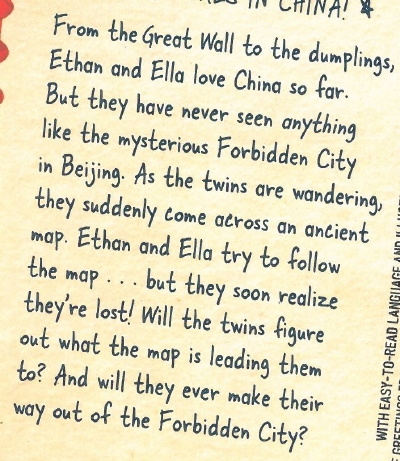 IN CHINA!
From the Great Wall to the dumplings,
Ethan and Ella love China so far.
But they have never seen anything
like the mysterious Forbidden City
in Beijing. As the twins are wandering,
they suddenly come across an ancient
map. Ethan and Ella try to follow
the map . . . but they soon realize
they're lost! Will the twins figure
out what the map is leading them
to? And will they ever make their
way out of the Forbidden City?
WITH EASY-TO-READ LANGUAGE AND